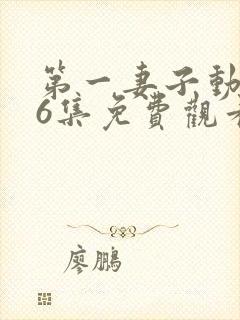 第一妻子動
6集免費觀看
廖鵬